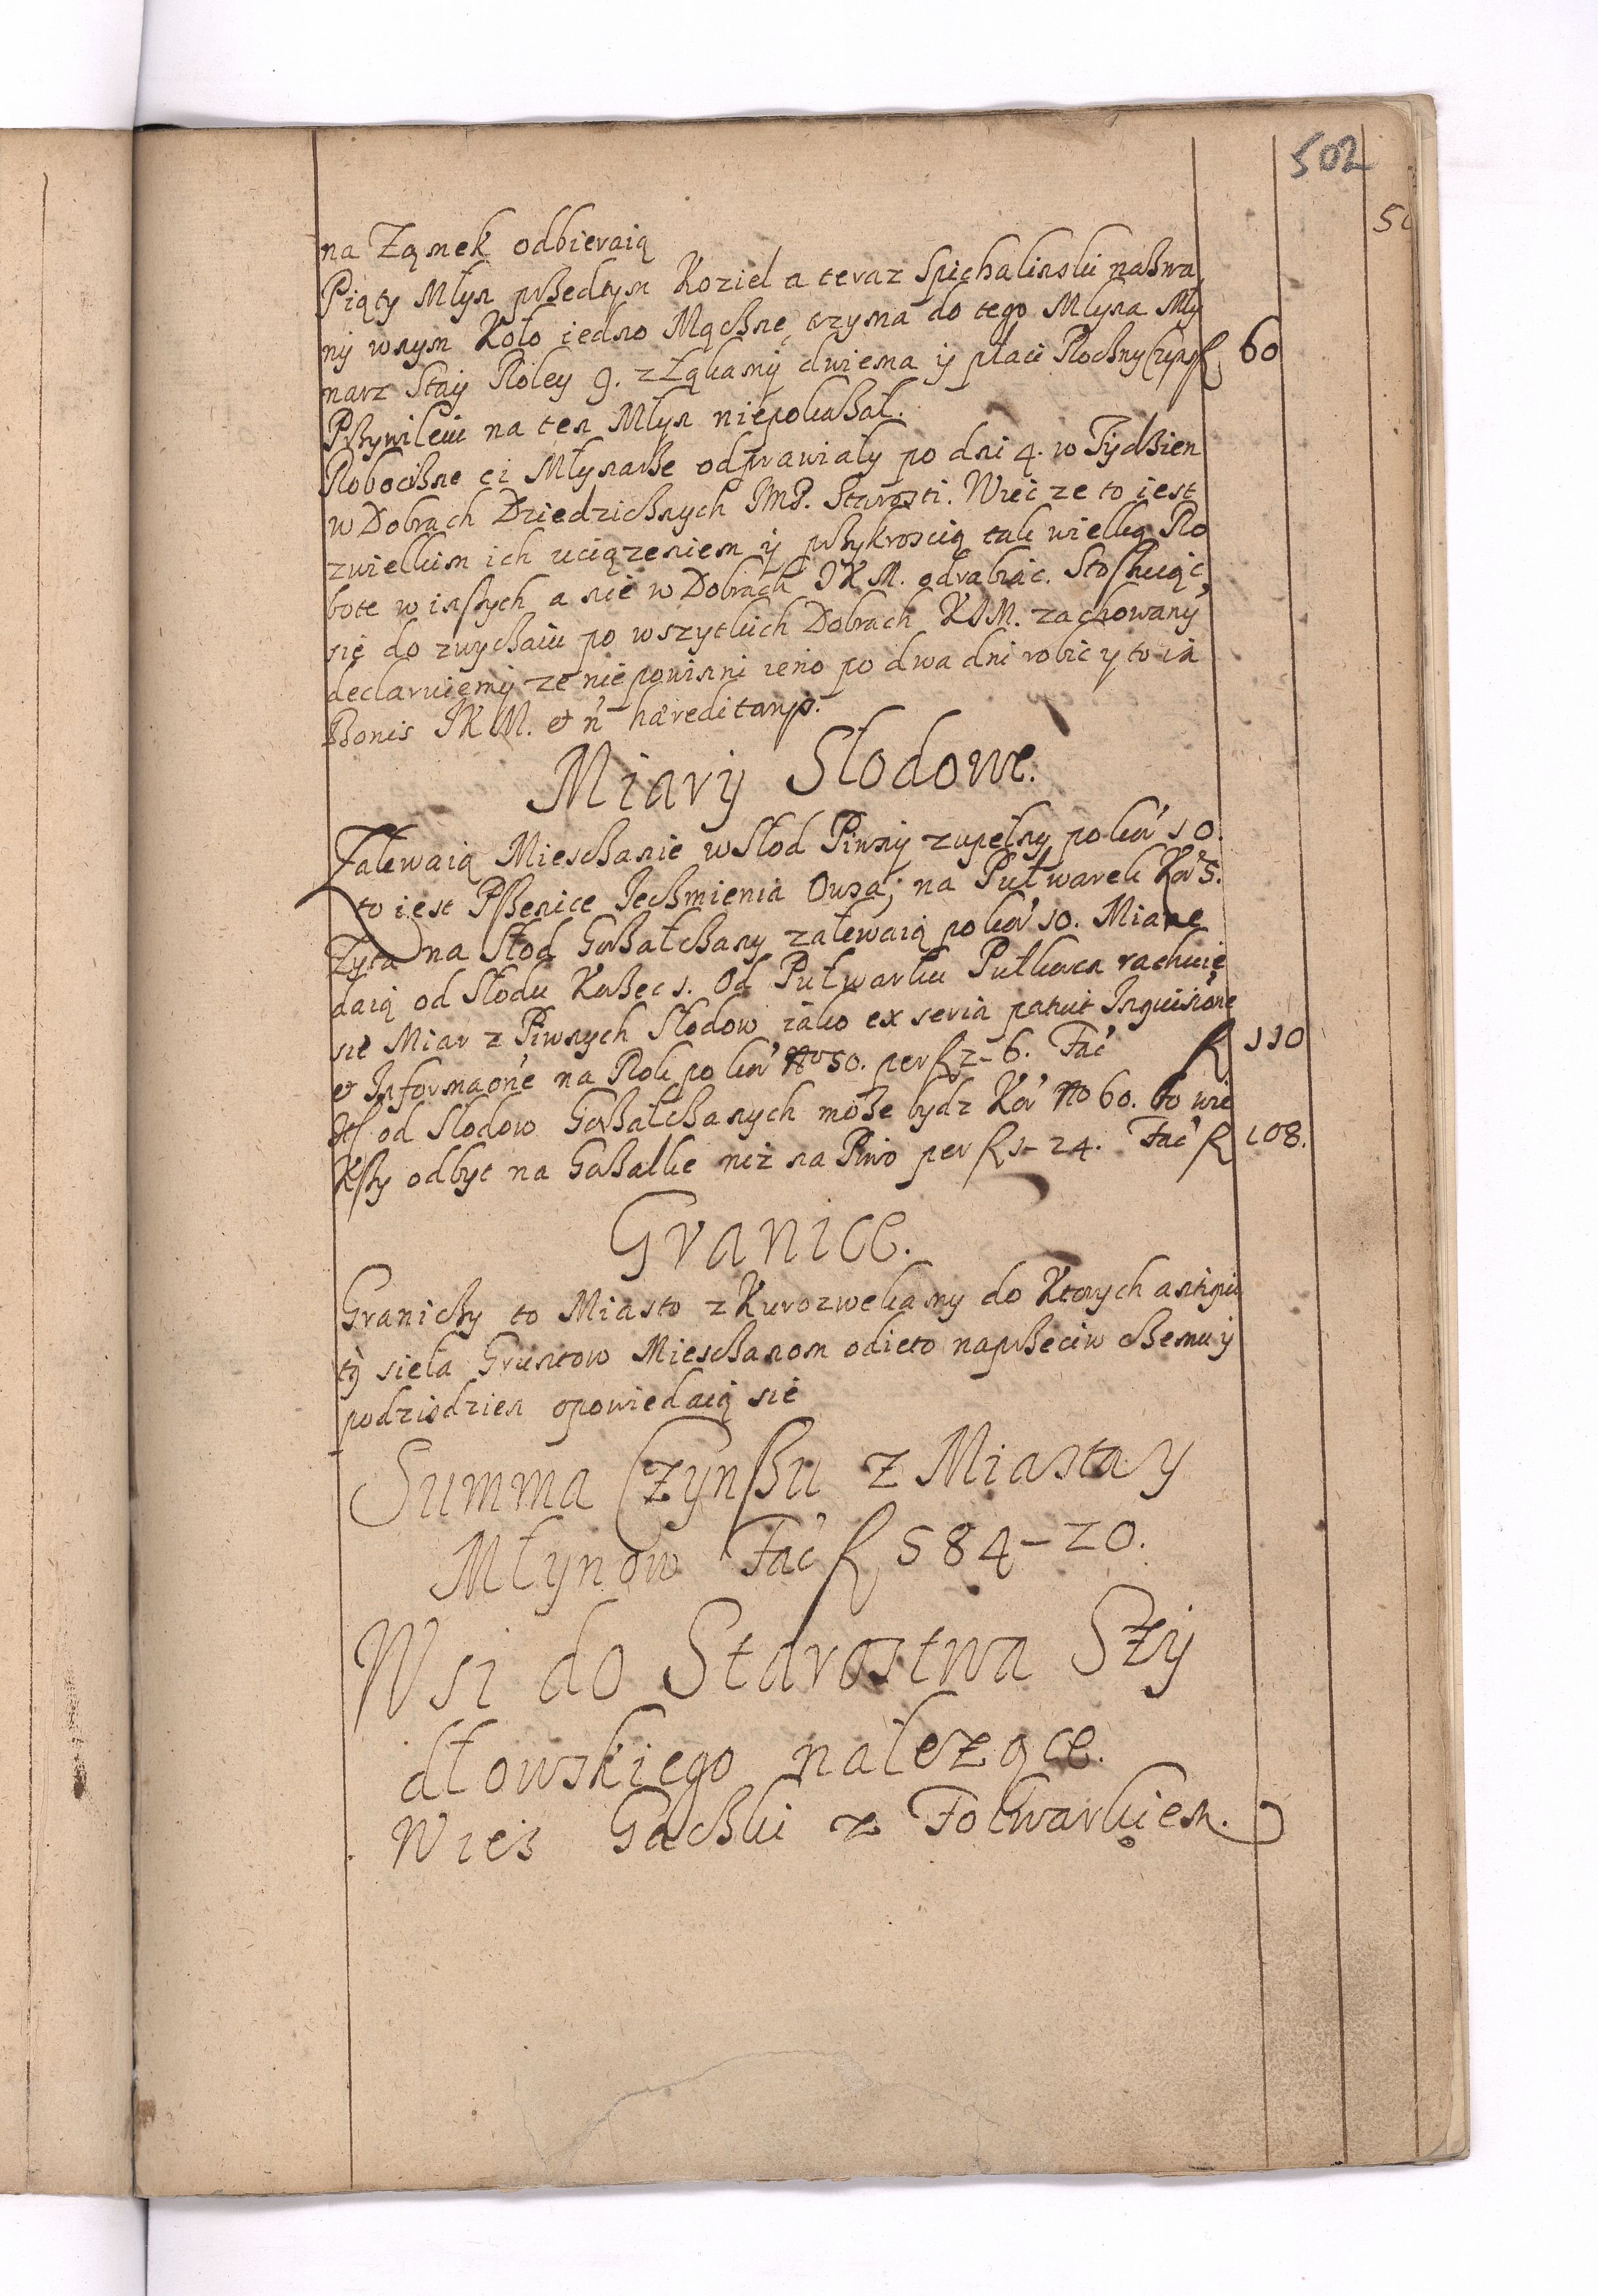 502
na Ząmek odbieraią
Piąty Młyn przedtym Koziel a teraz Spichalinski nazwa
ny wnym Koło iedno Mączne, trzyma do tego Młyna Mły
narz Staiÿ Roley 9. z Łąkamÿ dwiema ÿ płaci Roczny Czynsz f 60
Przywileiu na ten Młyn niepokazał.
Robocizne ci Młynarze odprawialy po dni 4. w Tÿdzien
w Dobrach Dziedzicznych JMP. Starosti. Wiec ze to iest
zwielkim ich uciązeniem ÿ przykroscią tak wielką Ro
bote w inszych a nie w Dobrach JKM. odrabiac. Stosuiąc
się do zwychaiu po wszytkich Dobrach KJM. zachowanÿ
declaruiemÿ ze nie powinni ieno po dwa dni robic y to in
Bonis JKM. et n hæreditarys.
Miarÿ Słodowe.
Zalewaią Miesczanie wSłod Piwnÿ zupełny po kor 10.
to iest Pszenice Jeczmienia Owsa; na Puł warek Kor 5.
Zyta na Słod Gorzałczany zalewaią po kor 10. Miarę
daią od Słodu Korzec 1. Od Pułwarku Pułkorca rachuie
się Miar z Piwnych Słodow iako ex seria patuit Inquisitione
et Informaõne na Rok po kor No 50. per f 2-6. Fac f 110
Itt od Słodow Gorzałczanych może bydz Kor No 60. bo wie
kszy odbyt na Gorzałke niz na Piwo per f 1-24. Fac f 108.
Granice.
Graniczy to Miasto z Kurozwekamy do Ktorych antiqui
tÿ siela Gruntow Miesczanom odieto naprzeciw czemu ÿ
podzisdzien opowiedaią się
Summa Czynszu z Miasta y
Młynow Fac f 584-20.
Wsi do Starostwa Szÿ
dłowskiego nalezące.
Wieś Gaczki z Folwarkiem.